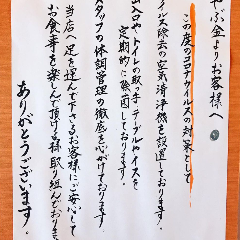 やぶ金よりお客様へ
この度のコロナウイルスの対策として
イルス除去の空気清浄機を設置しております。
出入口やトイレの取っ手、テーブルやイスを
定期的に除菌しております。
スタッフの体調管理の徹底を心がけております
当店へ足を運んで下さるお客様にご安心して
お食事を楽しんで頂ける様取り組んでおります
ありがとうございます。